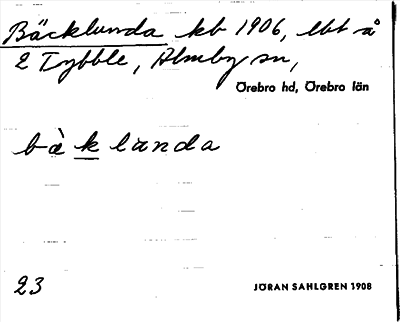 Bäcklunda kb 1906, lbt å
2 Tybble, Almby sn,
Örebro hd, Örebro län
bàklunda
23
JÖRAN SAHLGREN 1908